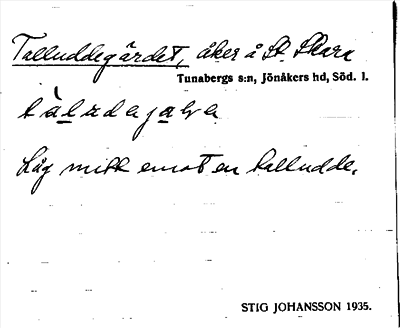 Talluddegärdet, åker å St. Skara
Tunabergs s:n, Jönåkers hd, Söd. l.
Låg mitt emot en talludde.
STIG JOHANSSON 1935.